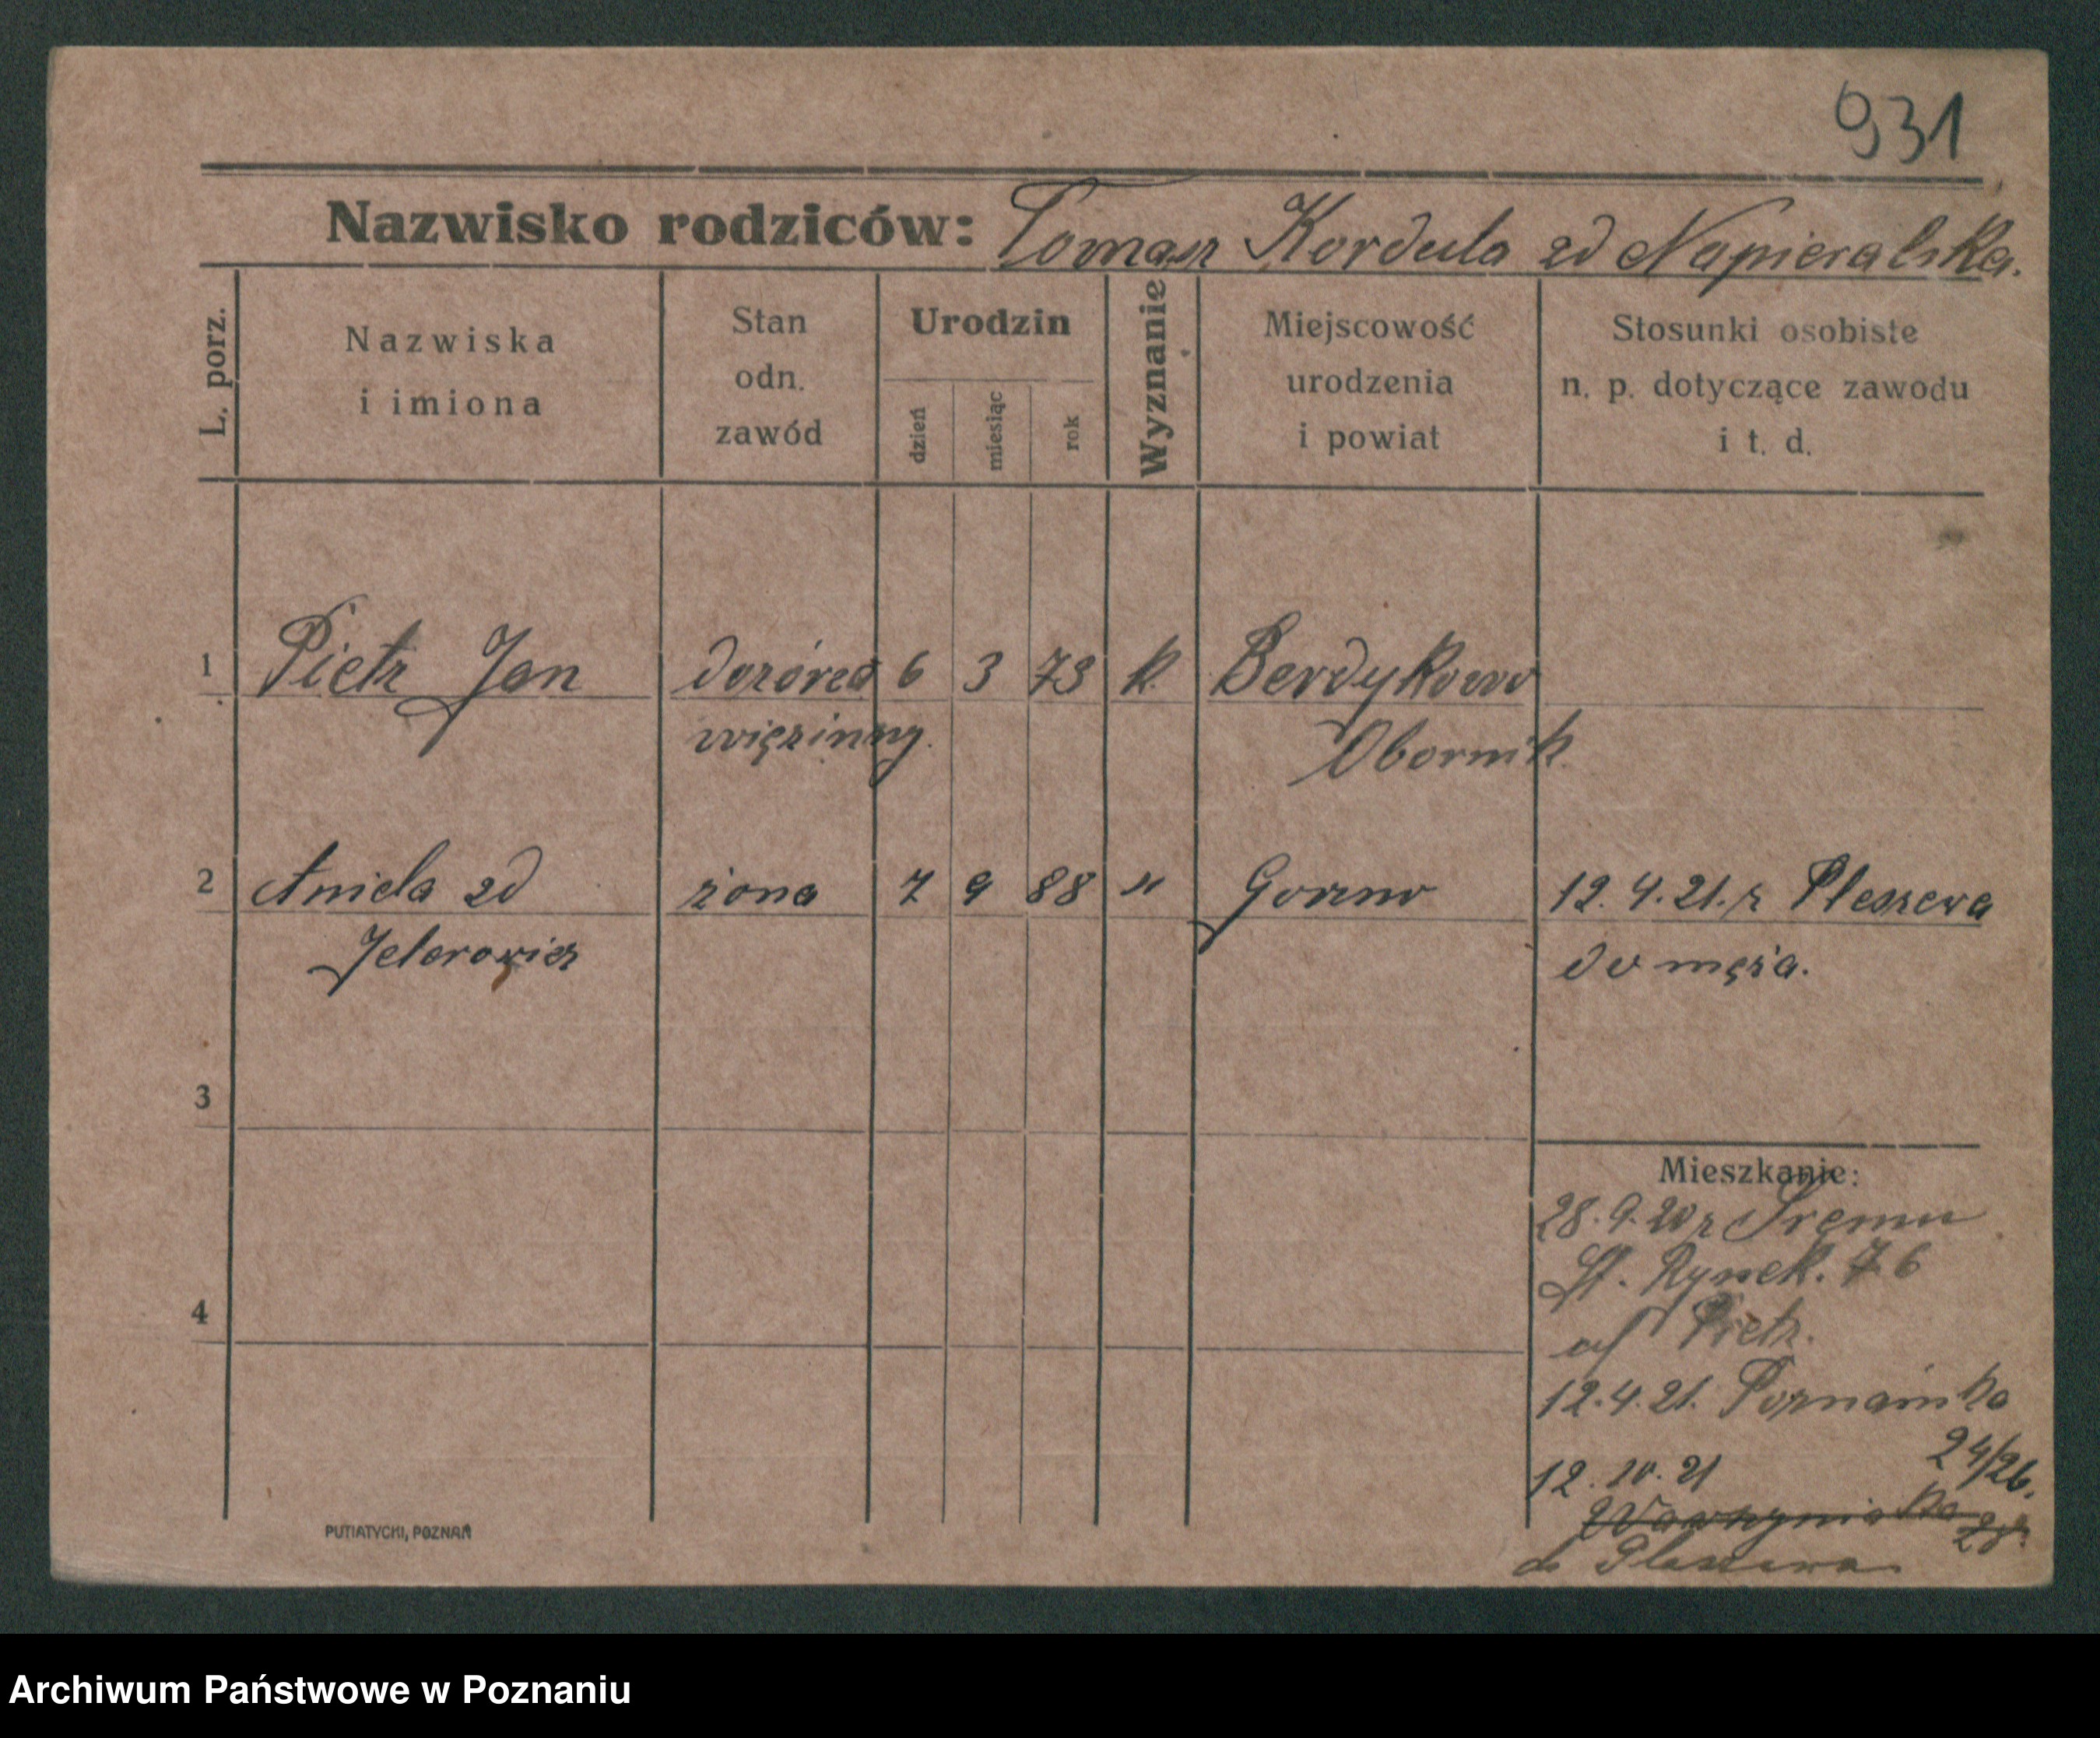 931
Nazwisko rodziców: Tomasz Kordula zd Napieralska.
L. porz.
Nazwiska
i imiona
Stan
odn.
zawód
Urodzin
dzień
miesiąc
rok
Wyznanie
Miejscowość
urodzenia
i powiat
Stosunki osobiste
n. p. dotyczące zawodu
i t. d.
1 Pietz Jan dozórca 6 3 73 k. Berdykowo
więzinny. Obornik
2 Aniela zd żona 7 9 88 " Gorzno 12.4.21. z Pleszewa
Jelerowicz do męża.
3
Mieszkanie:
28.9.20 z Śremu
St. Rynek. 76
4
Pietz.
12.4.21. Poznańska
24/26.
12.10.21
do Pleszewa
PUTIATYCKI, POZNAŃ
Archiwum Państwowe w Poznaniu